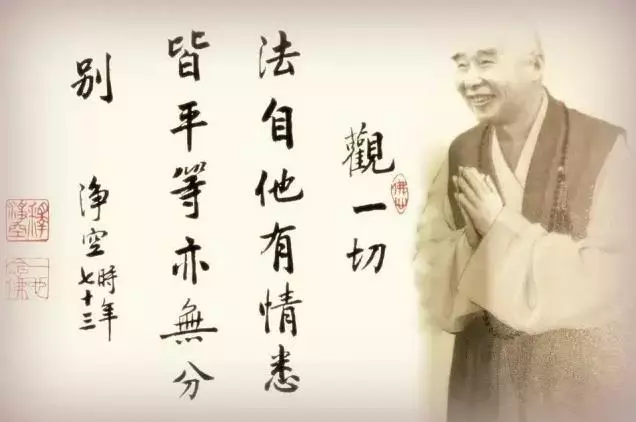 觀一切
法自他有情悉
皆平等亦無分
别
淨空
時年
七十三